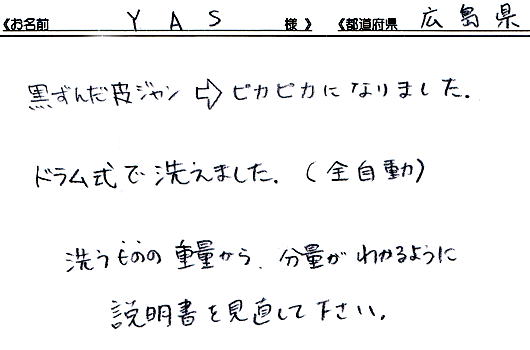 《お名前 YAS 様 》 《都道府県 広島県
黒ずんだ皮ジャン ⇨ ピカピカになりました.
ドラム式で洗えました.(全自動)
洗うものの重量から、分量がわかるように
説明書を見直して下さい.